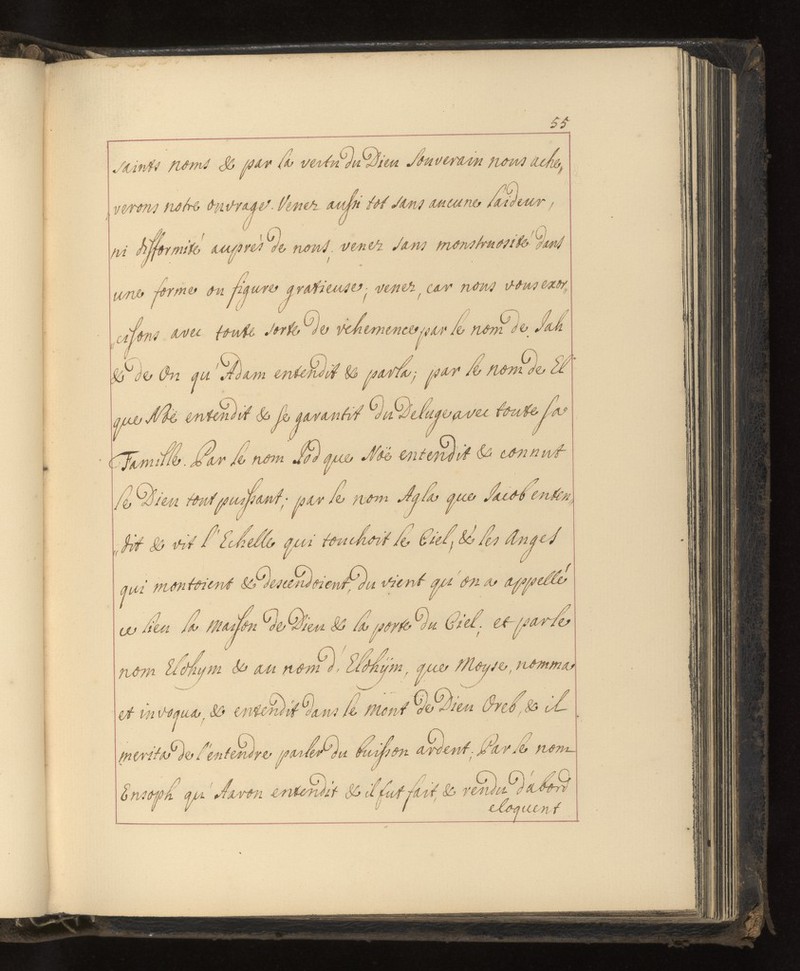 55
saints noms & par la vertu du Dieu Souverain nous ache,
,,verons notre ouvrage. Venez aussi tot sans aucune laideur,
ni difformité auprés de nous, venez sans monstruosité dans
une forme ou figure gratieuse; venez, car nous vous exor,
,,cisons avec toute sorte de vehemence par le nom de Jah
& de On qu'Adam entendit & parla; par le nom de El
que Noë entendit & se garantit du Deluge avec toute sa
Famille. Par le nom Iod que Noë entendit & connut
le Dieu tout puissant; par le nom Agla que Jacob enten,
,,dit & vit l'Echelle qui touchoit le Ciel, & les Anges
qui montoient & descendoient, du vient qu'on a appellé
ce lieu la Maison de Dieu & la porte du Ciel; et par le
nom Elohym & au nom d'Elohÿm, que Moyse, nomma
et invoqua, & entendit dans le Mont de Dieu Oreb, & il
merita de l'entendre parler du buisson ardent; Par le nom
Ensoph qu'Aaron entendit & il fut fait, & rendu d'abord
eloquent